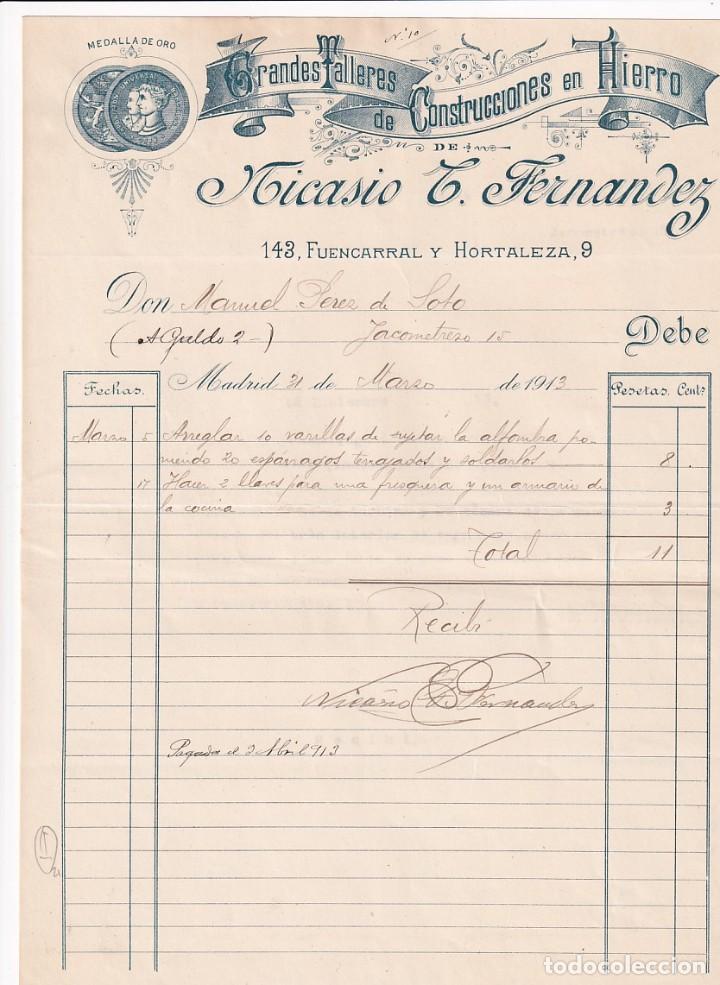 Nº 10
MEDALLA DE ORO
Grandes Talleres
de Construcciones en Hierro
DE
Nicasio T. Fernandez
143, FUENCARRAL Y HORTALEZA, 9
Don Manuel Perez de Soto
Jacometrezo 15 Debe
Madrid 31 de Marzo de 1913
Fechas. Pesetas. Cents
Marzo 5 Arreglar 10 varillas de sujetar la alfombra po-
niendo 20 espárragos terrajados y soldarlos 8
17 Hacer 2 llaves para una fresquera y un armario de
la cocina 3
Total 11
Recibí
Nicasio T. Fernandez
Pagada el 3 Abril 913
todocoleccion.net